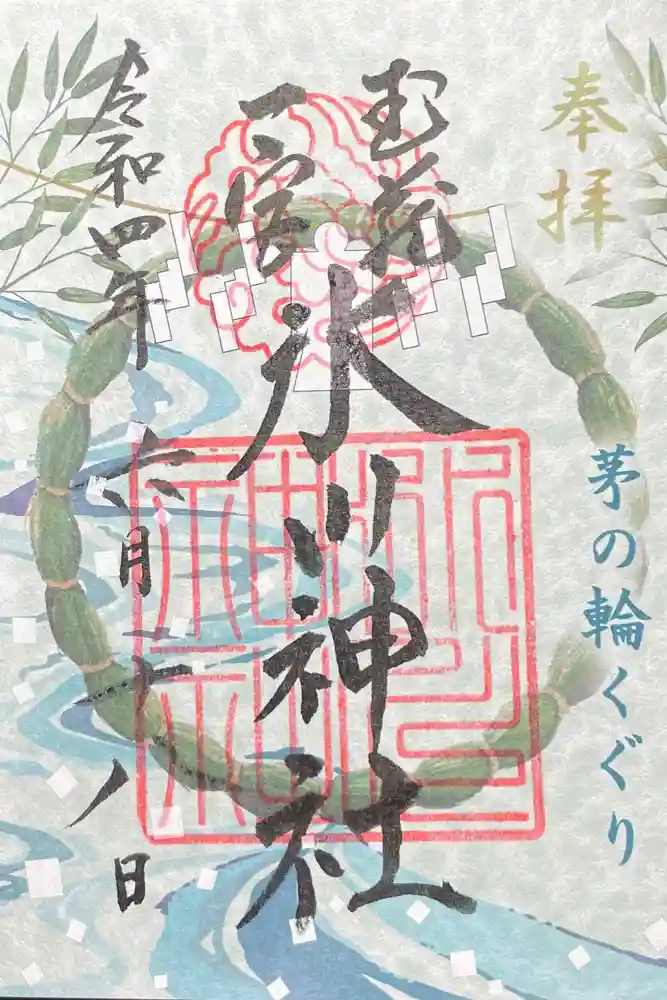 奉拝
茅の輪くぐり
武蔵
一宮
氷川神社
令和四年六月十八日